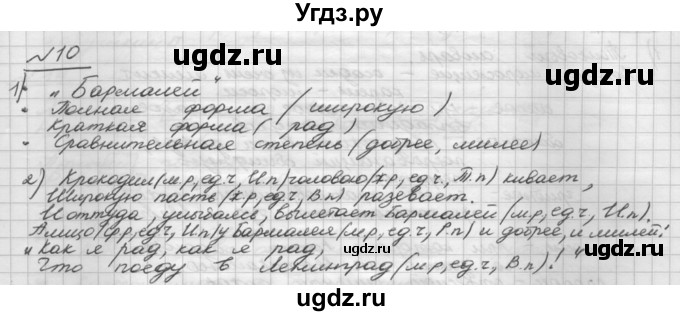 Угдз.ру
№10
1) „Бармалей"
• Полная форма (широкую)
Краткая форма (рад)
• Сравнительная степень (добрее, милее)
2) Крокодил (м.р, ед.ч, И.п) головою (ж.р, ед.ч, Т.п) кивает,
Широкую пасть (ж.р, ед.ч, В.п) разевает.
И оттуда, улыбаясь, вылетает Бармалей (м.р, ед.ч, И.п).
А лицо (ср.р, ед.ч, И.п) у Бармалея (м.р, ед.ч, Р.п) и добрее, и милей!
„Как я рад, как я рад,
Что поеду в Ленинград (м.р, ед.ч, В.п)!"
ugdz.ru
ugdz.ru
ugdz.ru
ugdz.ru
ugdz.ru
ugdz.ru
ugdz.ru
ugdz.ru